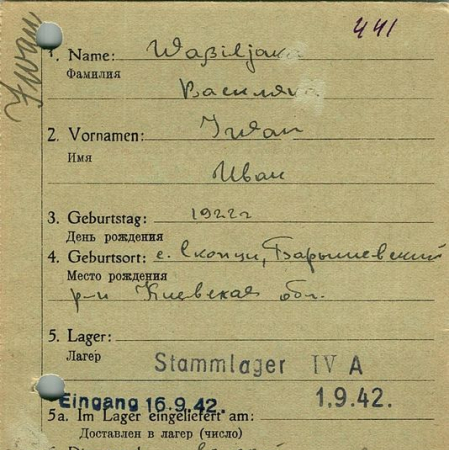 441
Iwan
1. Name: Waßiljaka
Фамилия
Василяка
2. Vornamen: Iwan
Имя
Иван
3. Geburtstag: 1922г
День рождения
4. Geburtsort: с. Скопци, Барышевский
Место рождения
р-н Киевская обл.
5. Lager:
Лагер
Stammlager IV A
Eingang 16.9.42.
1.9.42.
5a. Im Lager eingeliefert am:
Доставлен в лагер (число)